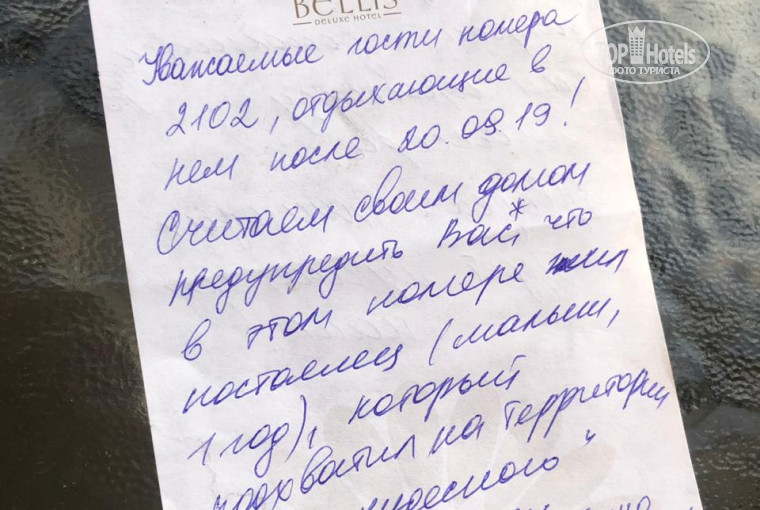 BELLIS
DELUXE HOTEL
TOP Hotels
ФОТО ТУРИСТА
Уважаемые гости номера
2102, отдыхающие в
нем после 20.09.19!
Считаем своим домом
предупредить Вас* что
в этом номере жил
постоялец (малыш,
1 год), который
подхватил на территории
чудесного"